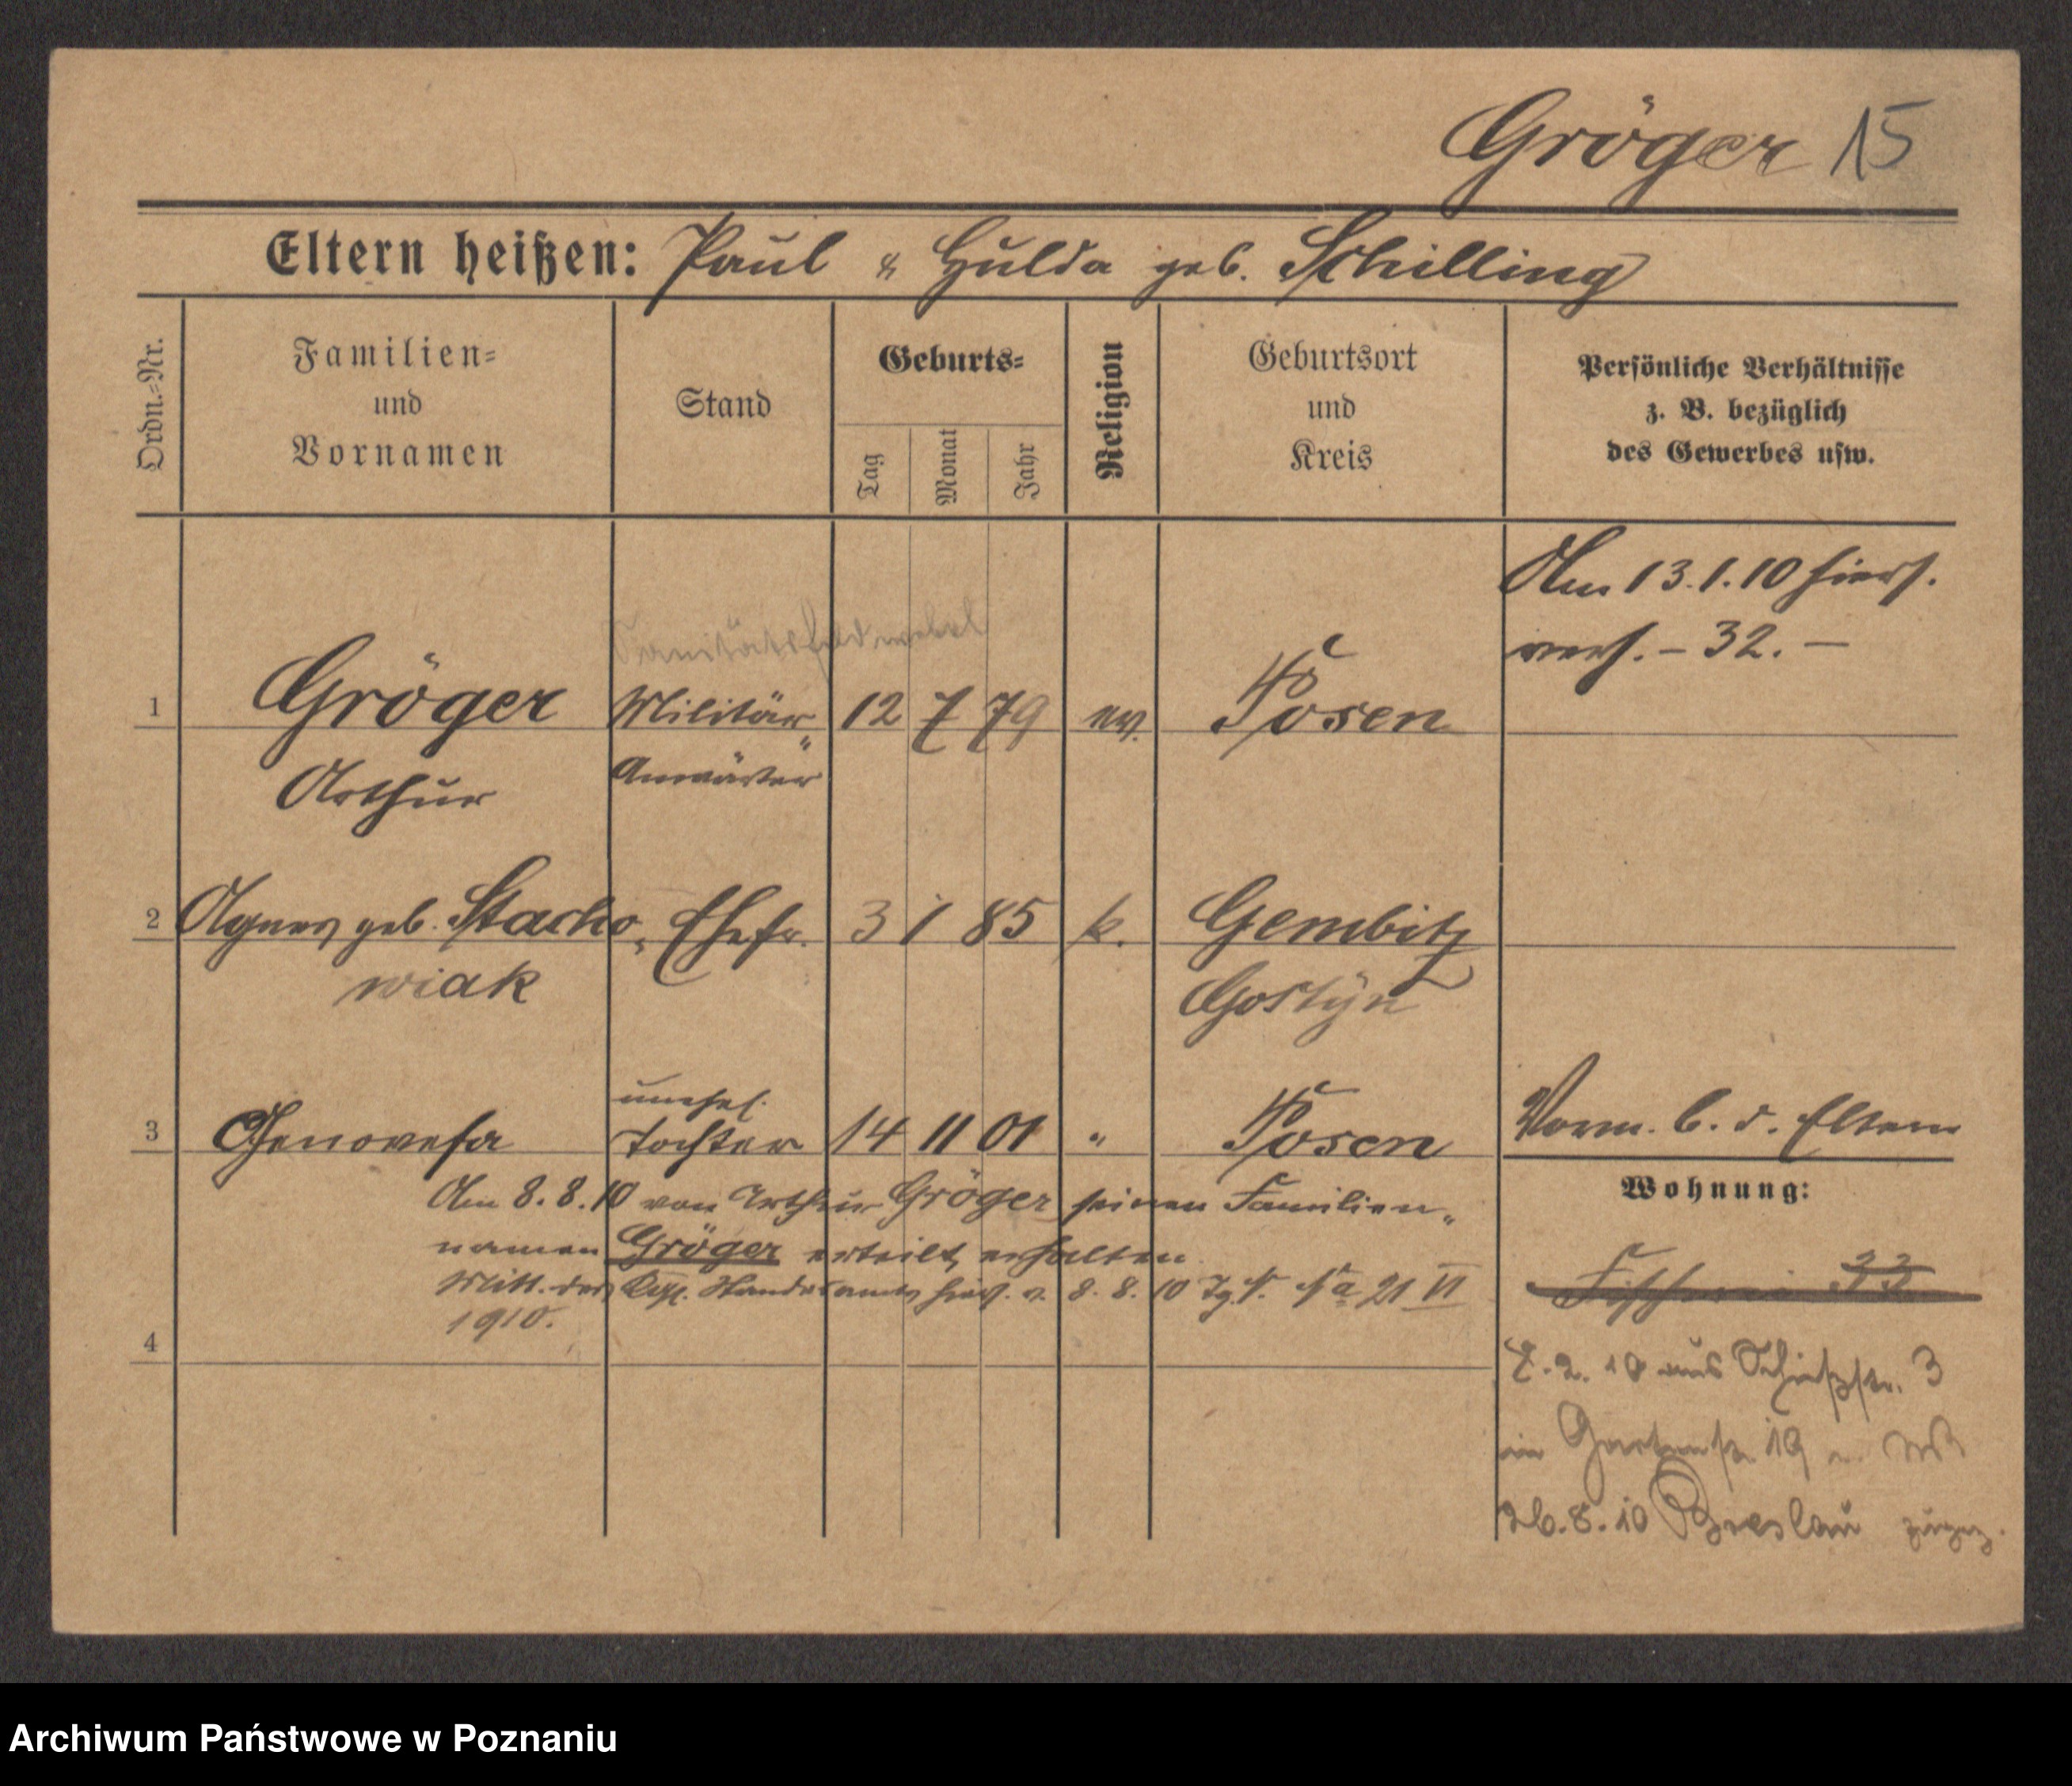 Gröger 15
Eltern heißen: Paul u Hulda geb. Schilling
Ordn.-Nr.
Familien-
und
Vornamen
Stand
Geburts-
Tag
Monat
Jahr
Religion
Geburtsort
und
Kreis
Persönliche Verhältnisse
z. B. bezüglich
des Gewerbes usw.
Am 13.1.10 hiers.
verh. – 32. –
Sanitätsfeldwebel
1 Gröger Militär 12 7 79 ev. Posen
Arthur Anwärter
2 Agnes geb. Stacho„ Ehefr. 3 1 85 k. Gembitz
wiak Gostyn
unehel.
3 Genovefa Tochter 14 11 01 " Posen Vorm. b. d. Eltern
Am 8.8.10 von Arthur Gröger seinen Familien„
namen Gröger erteilt erhalten
Mitt. des Kgl. Standesamts hies. v. 8.8.10 21 VI
1910.
4
Wohnung:
33
2. 10 aus Schießstr. 3
in Gartenstr 19
26.8.10 Breslau
Archiwum Państwowe w Poznaniu